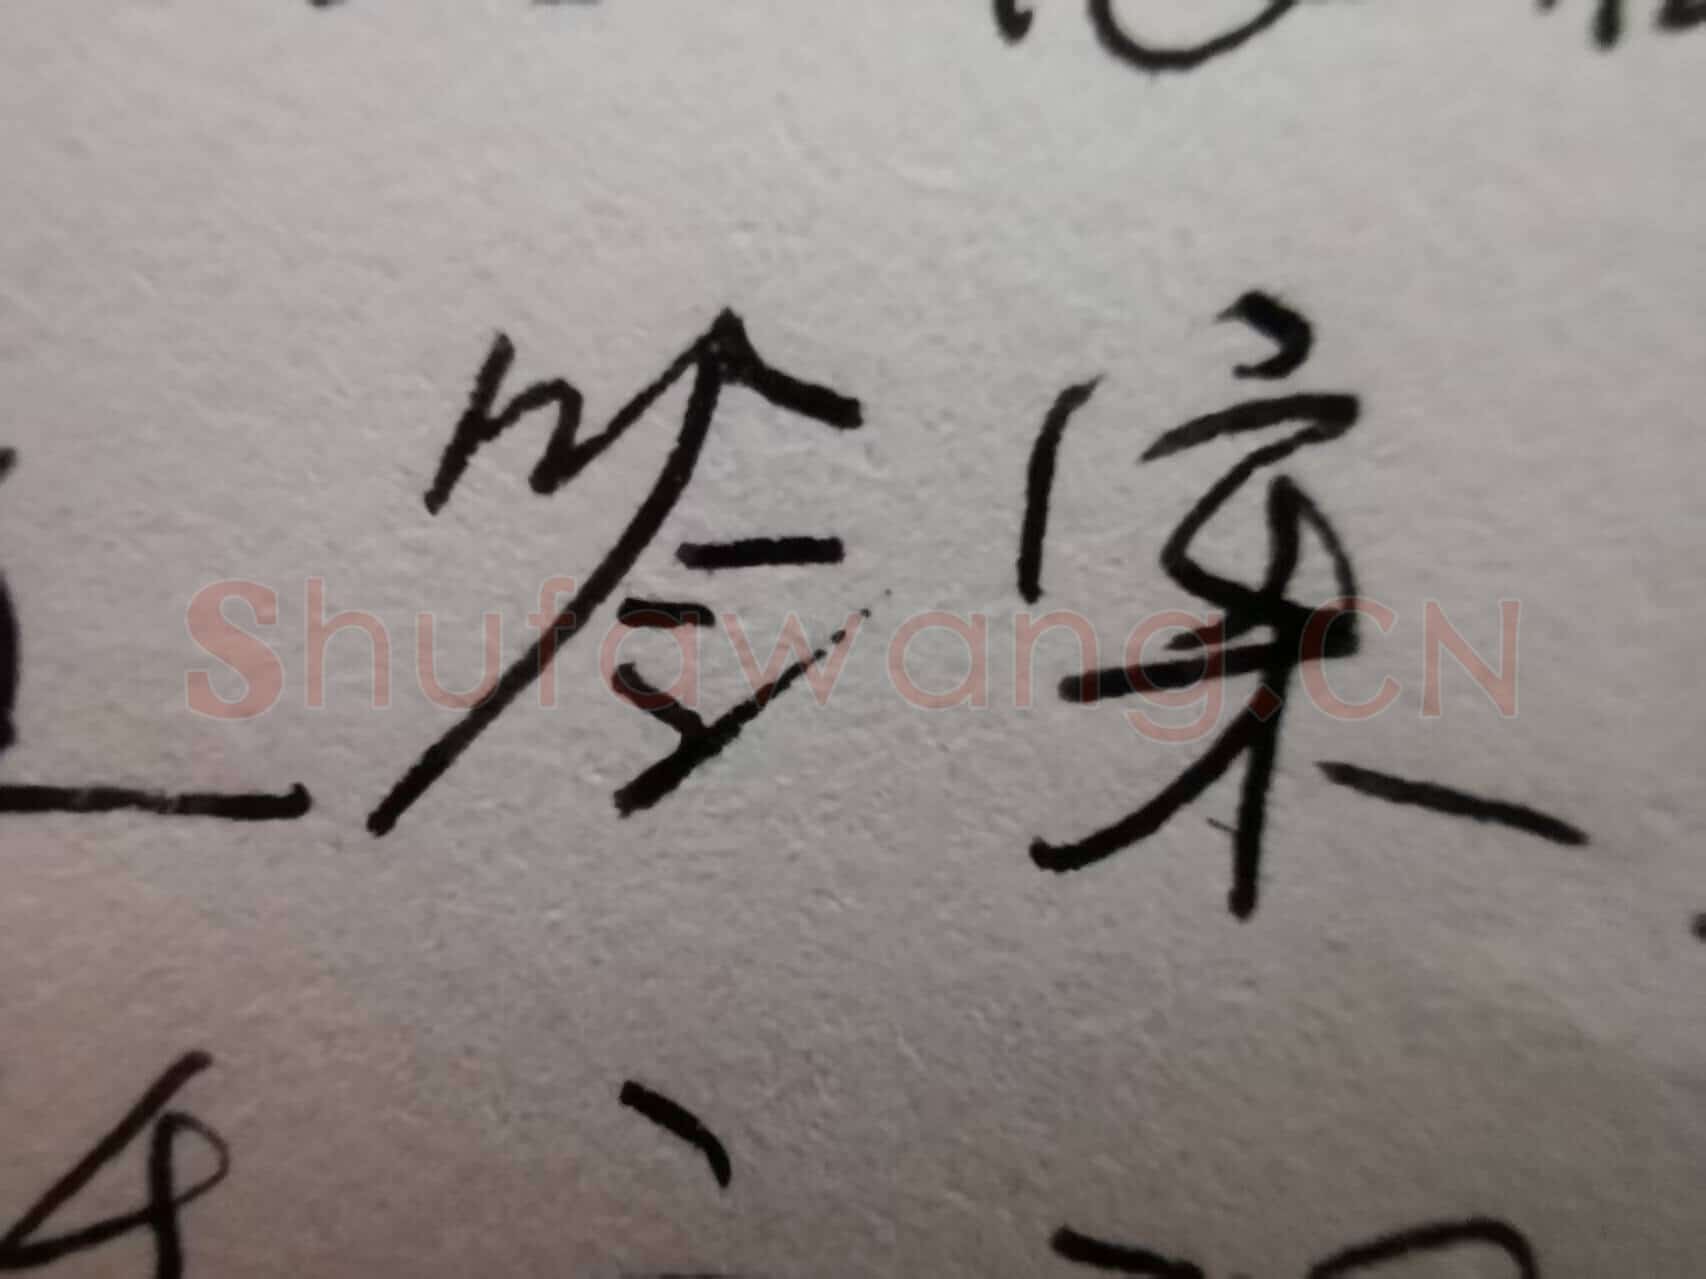 答案
Shufawang.CN